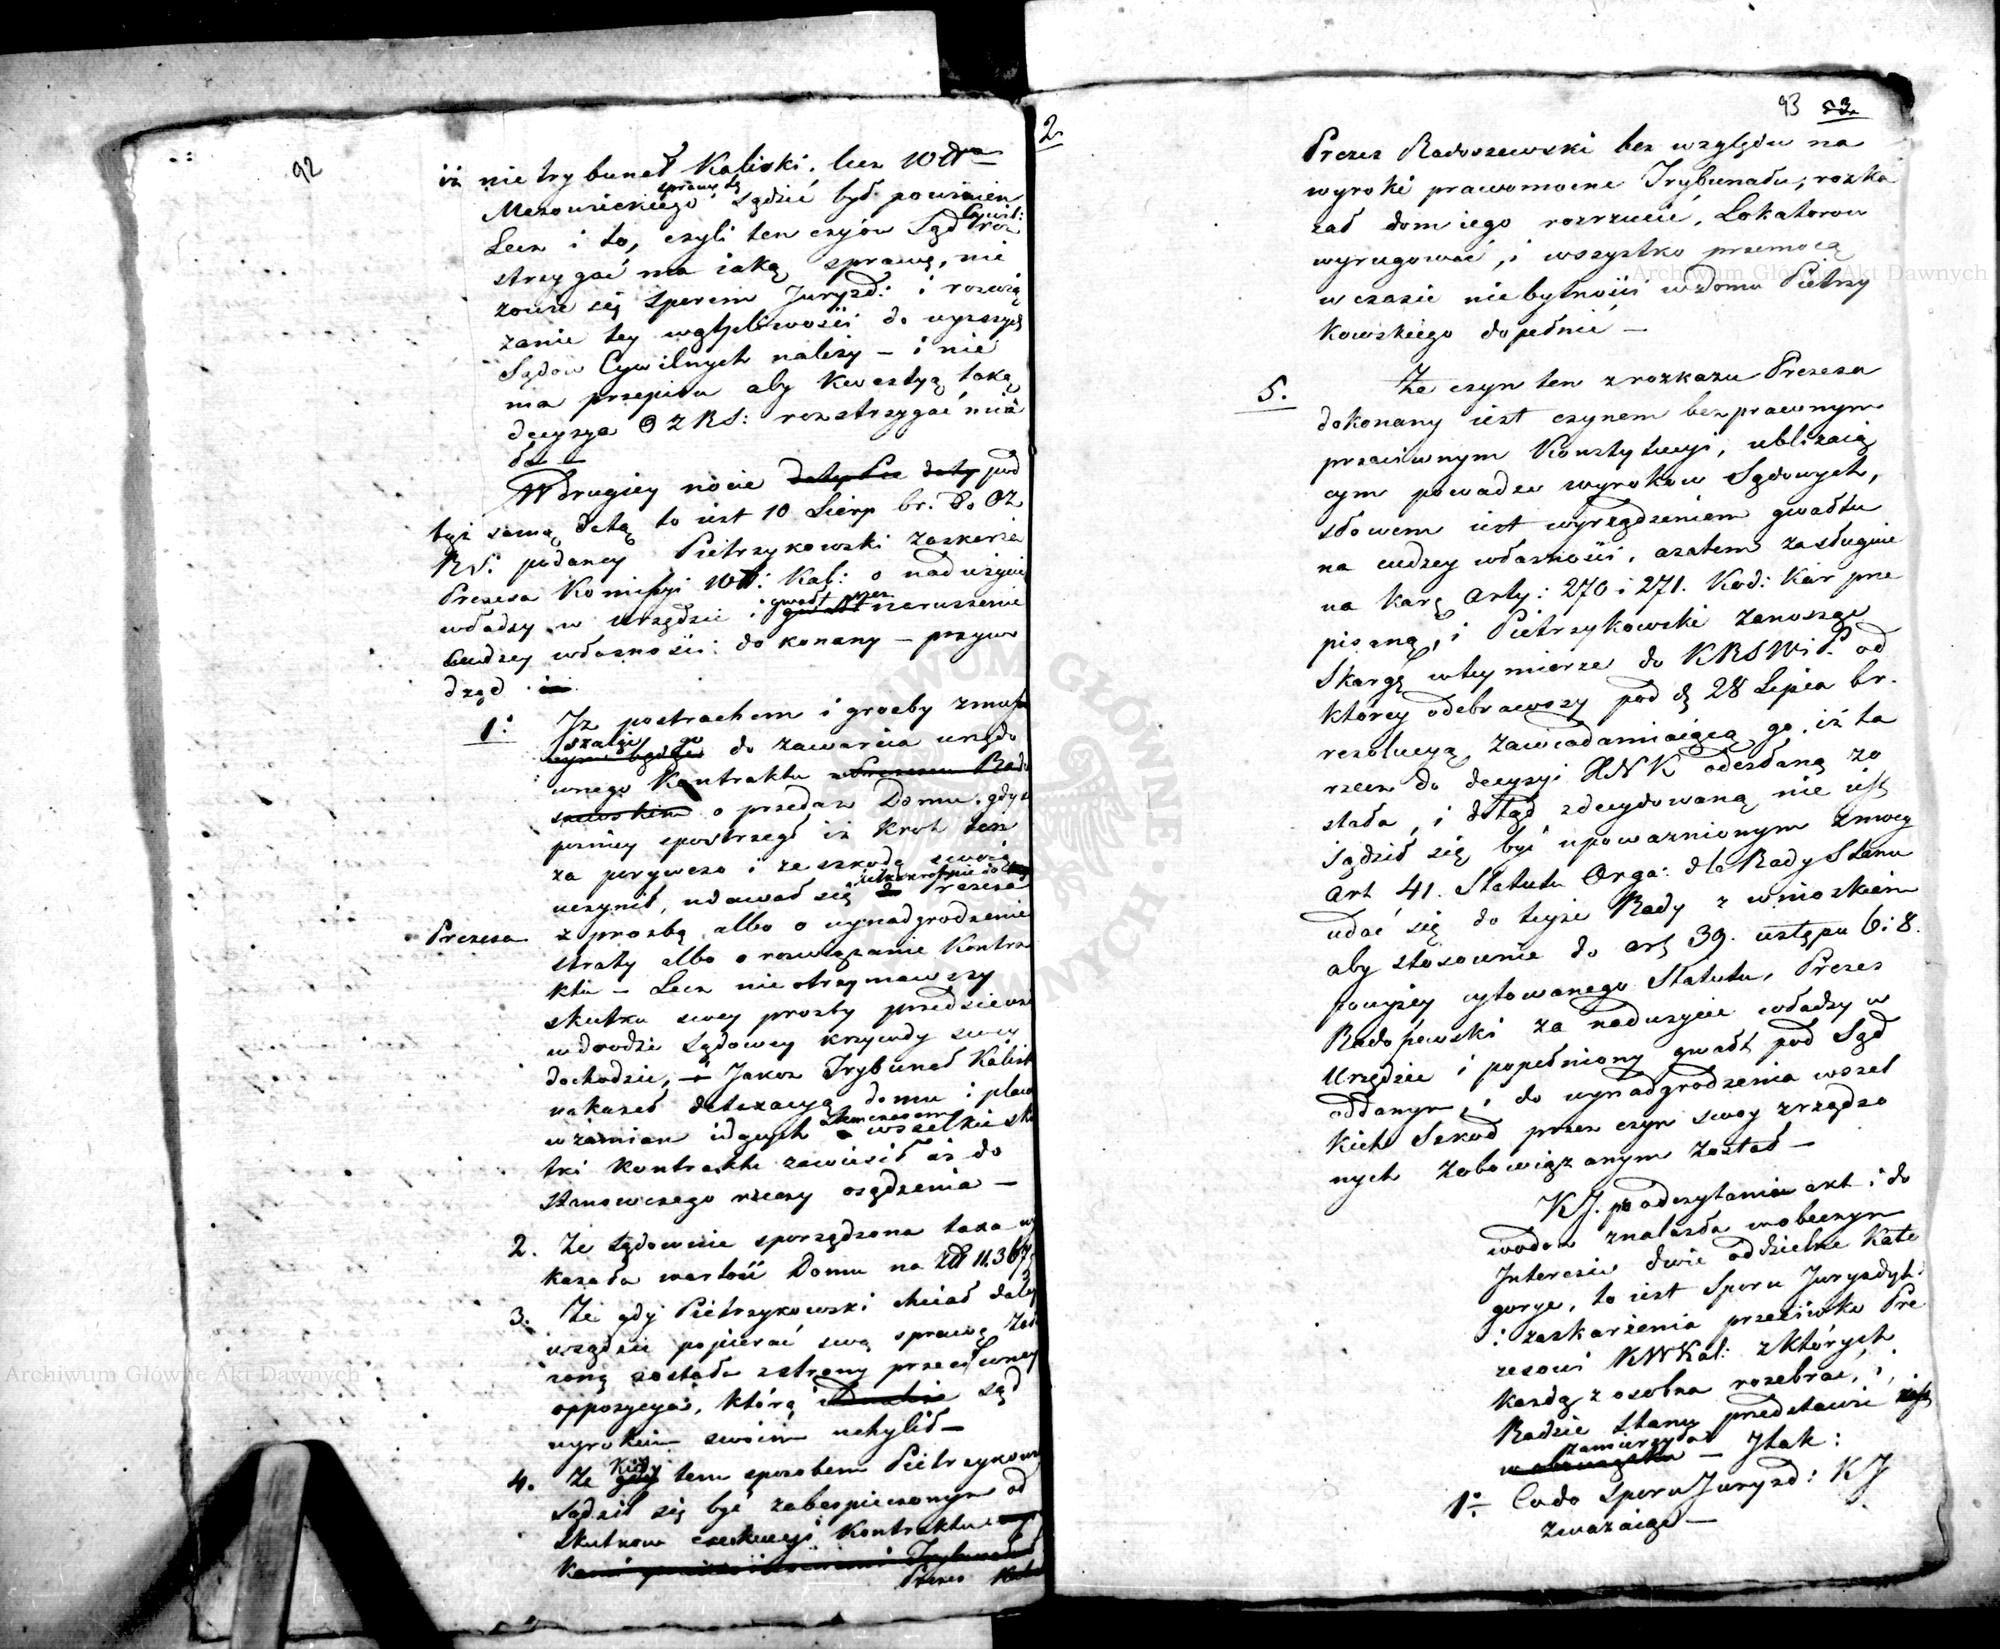 92
iż nie trybunał Kaliski, lecz Wdztwa
Mazowieckiego sprawę tę sądzić był powinien
Lecz i to, czyli ten czyów Sąd Cywil: roz
strzygać ma iaką sprawę, nie
zowie się sporem Juryzd: i rozwią
zanie tey wątpliwości do wyższych
Sądow Cywilnych należy – i nie
ma przepisu aby kwestyą taką
decyzya RS: rozstrzygać miała
W drugiey nocie pod
tąż samą datą to iest 10 Sierp br. Do
RS. podaney Pietrzykowski zaskarża
Prezesa Komissyi Wd: Kal: o nadużycie
władzy w urzędzie i gwałt przez naruszenie
cudzey własności dokonany – przywo
dząd
1° Iż postrachem i groźby zmusza
go do zawarcia urzędo
wnego Kontraktu
o przedaż Domu, gdy
poźniey spostrzegł iż krok ten
za porywczo i ze szkodą swoią
uczynił, udawał się
Prezesa z prozbą albo o wynadgrodzenie
straty albo o rozwiązanie Kontra
ktu – Lecz nie otrzymawszy
skutku swey prozby przedsięwzi
w drodze sądowey krzywdy swey
dochodzić, – Jakoż Trybunał Kalisk
nakazał detaxacyą domu i placu
w zamian idących wszelkie sku
tki kontraktu zawiesił aż do
stanowczego rzeczy osądzenia –
2. Ze sądownie sporządzona taxa wy
kazała wartość Domu na
3. Że gdy Pietrzykowski chciał daley
w sądzie popierać swą sprawę
została z strony przeciwney
oppozycya, którą sąd
wyrokiem swoim uchylił –
4. Ze kiedy tem sposobem Pietrzykows
sądził się być zabespieczonym od
skutkow exekucyi Kontraktu
Prezes
2.
93 53.
Prezes Radoszewski bez względu na
wyroki prawomocne Trybunału, rozka
zał dom iego rozrzucić, Lokatorow
wyrugować, i wszystko przemocą
w czasie niebytności w domu Pietrzy
kowskiego dopełnić –
5. Że czyn ten z rozkazu Prezesa
dokonany iest czynem bezprawnym
przeciwnym Konstytucyi, ubliżaią
cym powadze wyrokow Sądowych,
słowem iest wyrządzeniem gwałtu
na cudzey własności, a zatem zasługuie
na karę Arty: 270 i 271. Kod: Kar prze
pisaną, i Pietrzykowski zanosząc
Skargę w tey mierze do KRSWiP. od
ktorey odebrawszy pod d 28 Lipca br.
rezolucyą zawiadamiaiącą go, iż ta
rzecz do decyzyi XNK odesłaną zo
stała, i dotąd zdecydowaną nie iest
sądził się być upoważnionym z mocy
art 41. Statutu Orga: dla Rady Stanu
udać się do teyże Rady z wnioskiem
aby stosownie do art 39. ustępu 6: 8.
powyżey cytowanego Statutu, Prezes
Radoszewski za nadużycie władzy w
Urzędzie i popełniony gwałt pod Sąd
oddanym, i do wynadgrodzenia wszel
kich Szkod przez czyn swoy zrządzo
nych zobowiązanym został –
KJ. po odczytaniu akt i do
wodow znalazła w obecnym
Interesie dwie oddzielne Kate
gorye, to iest Sporu Juryzdyk:
i zaskarżenia przeciwko Pre
zesowi KWKal: z których
każdą z osobna rozebrać, i
Radzie Stanu przedstawić
zamierzyła – J tak:
1° Co do sporu Juryzd: KJ
zważaiąc –
Archiwum Główne Akt Dawnych
Archiwum Główne Akt Dawnych